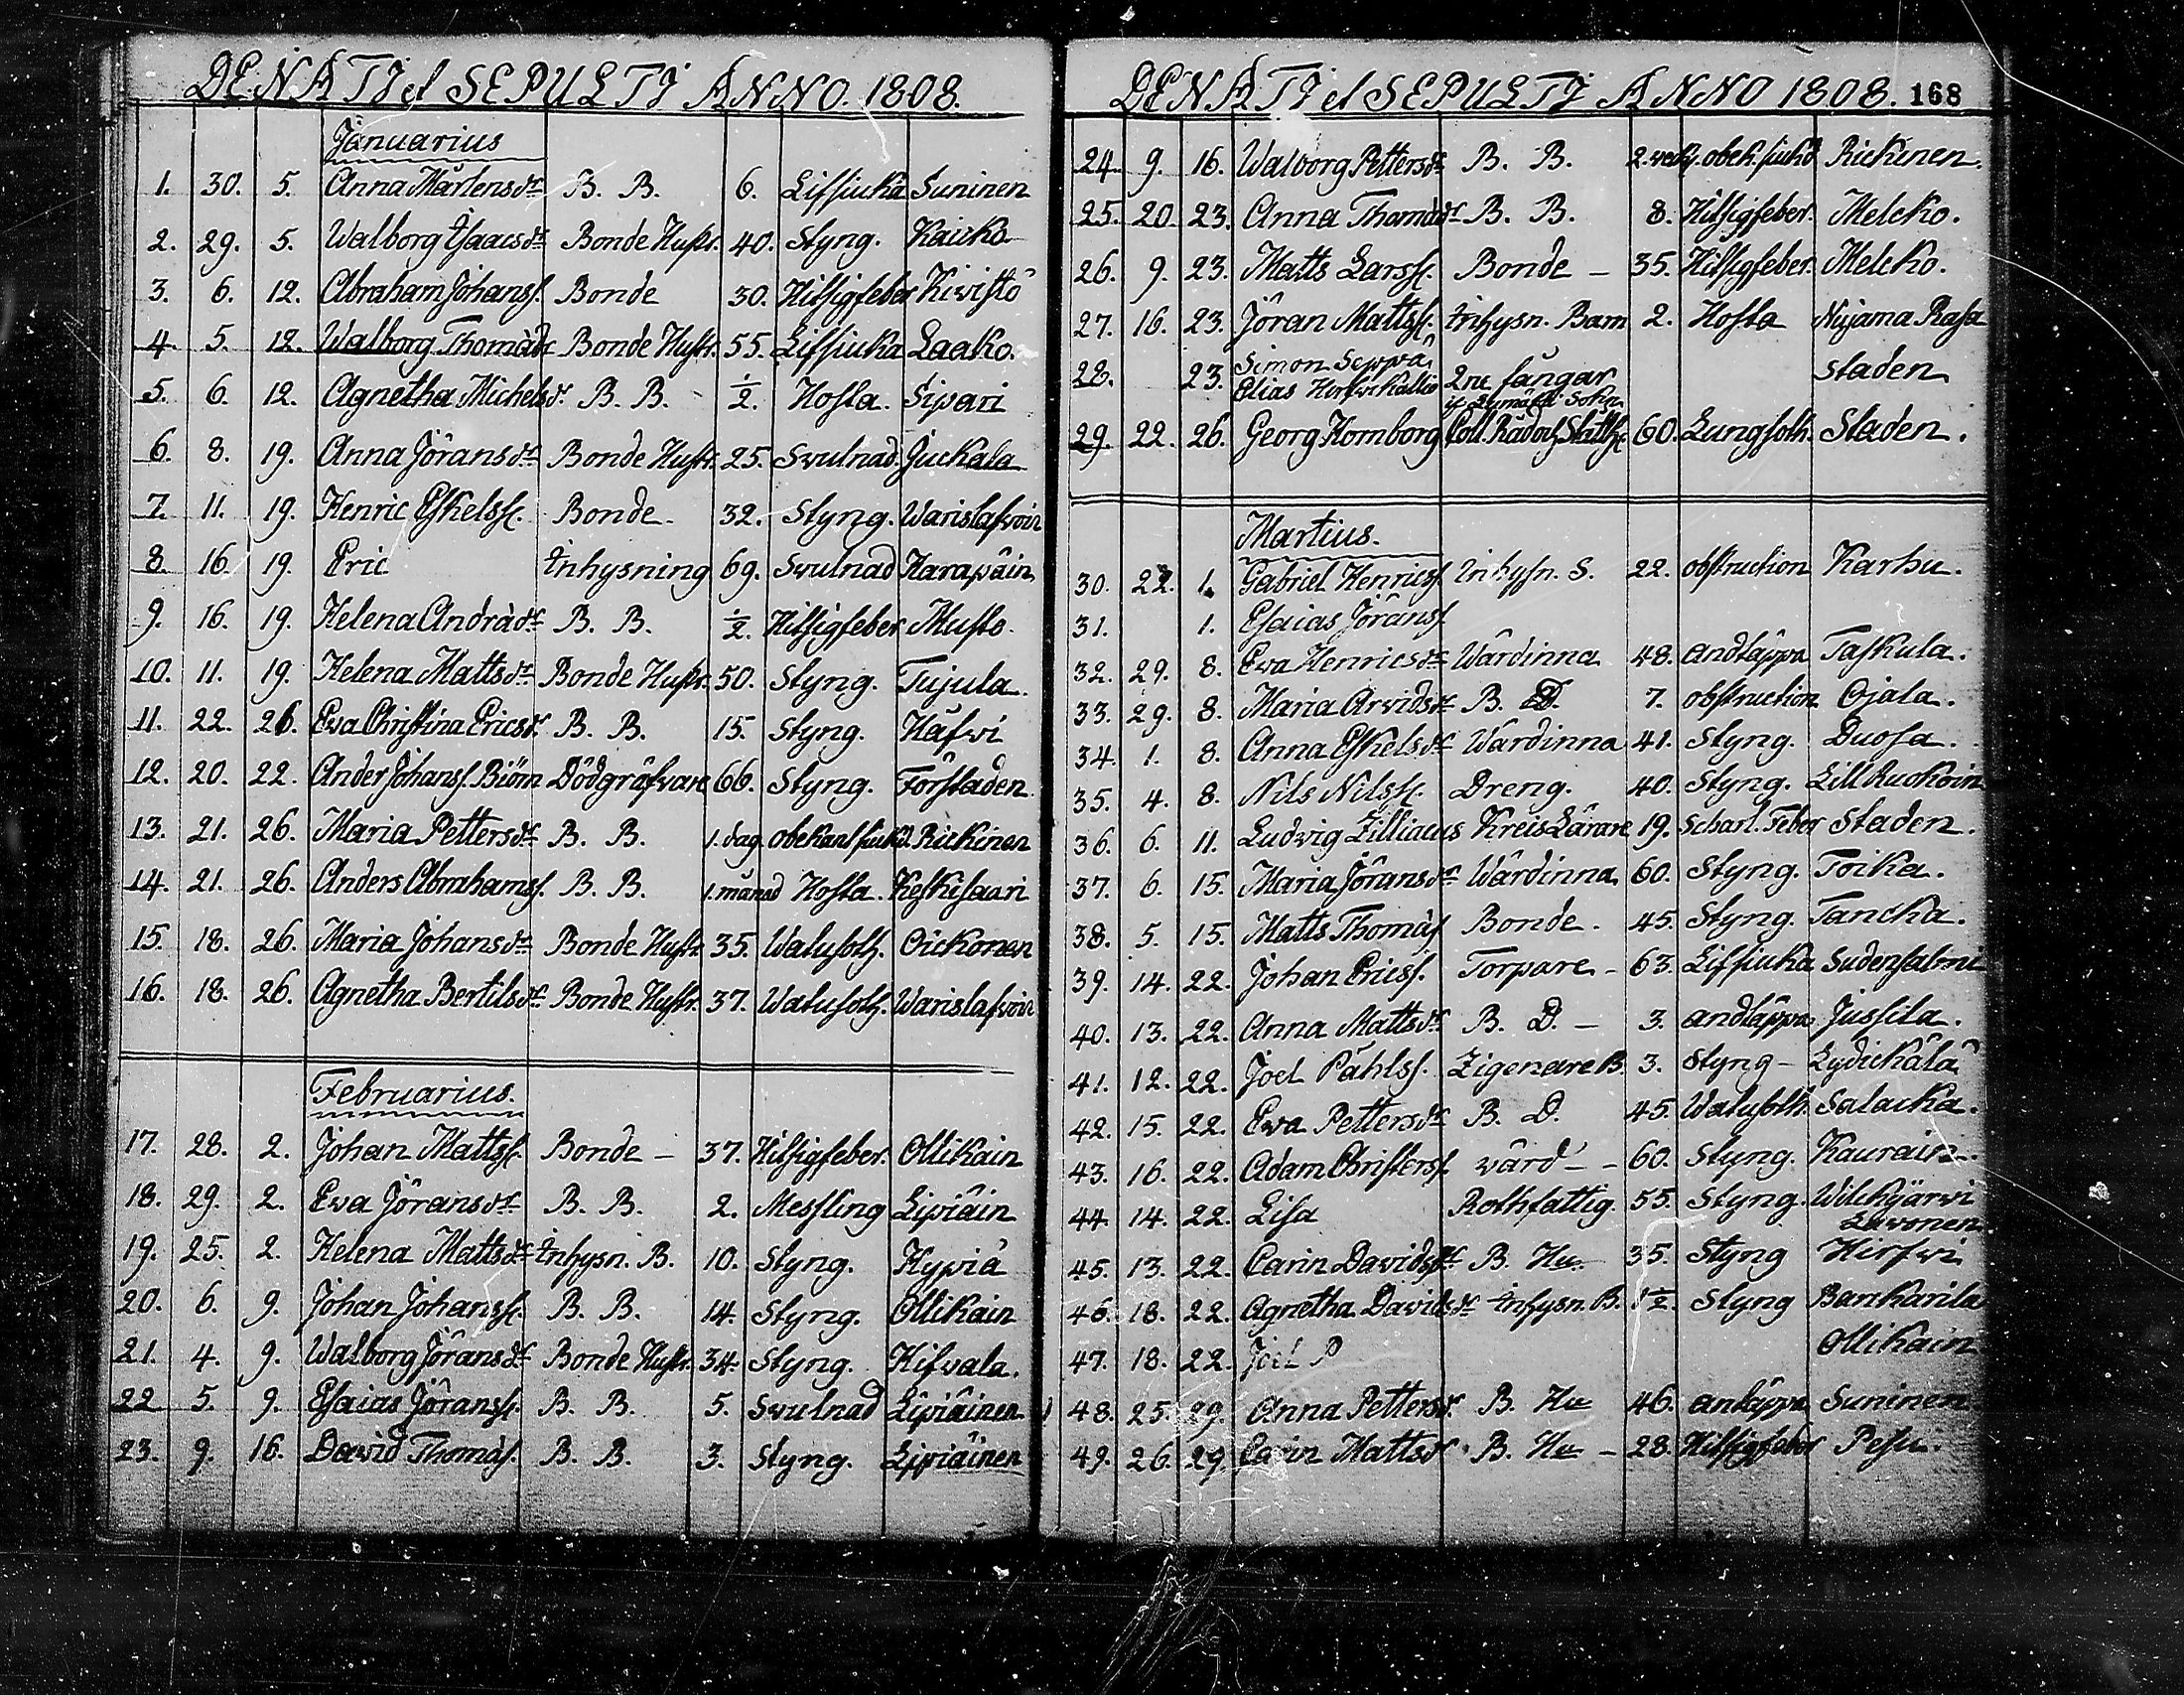 DENATI et SEPULTI ANNO. 1808.
Januarius
1. 30. 5. Anna Mårtensdr B. B. 6. Lifsiuka Suninen
2. 29. 5. Walborg Isaacsdr Bonde Hustr. 40. Styng. Kaicko
3. 6. 12. Abraham Johanss. Bonde 30. Hitsigfeber Kivistö
4. 5. 12. Walborg Thomädr Bonde Hustr. 55. Lifsiuka Laako.
5. 6. 12. Agnetha Michelsdr. B. B. 1/2. Hosta. Sipari
6. 8. 19. Anna Jöransdr Bonde Hustr. 25. Svulnad. Juckala
7. 11. 19. Henric Eskelss. Bonde. 32. Styng. Warislafvoin
8. 16 19. Eric Inhysning 69. Svulnad Harapäin
9. 16. 19. Helena Andrädr B. B. 1/2. Hitsigfeber Musto.
10. 11. 19. Helena Mattsdr Bonde Hustr. 50. Styng. Tujula.
11. 22. 26. Eva Christina Ericsdr B. B. 15. Styng. Häfwi
12. 20. 22. Ander Johanss. Biörn Dödgräfvare 66. Styng. Förstaden.
13. 21. 26. Maria Pettersdr B. B. 1. dag obekant siukd. Rickinen
14. 21. 26. Anders Abrahamss. B. B. 1. månad Hosta. Keskisaari
15. 18. 26. Maria Johansdr Bonde Hustr. 35. Watusoth. Oickonen
16. 18. 26. Agnetha Bertilsdr Bonde Hustr. 37. Watusoth. Warislafvoin
Februarius.
17. 28. 2. Johan Mattss. Bonde - 37. Hitsigfeber. Ollikain
18. 29. 2. Ewa Jöransdr B. B. 2. Messling Lipiäin
19. 25. 2. Helena Mattsdr Inhysn. B. 10. Styng. Hypiä
20. 6. 9. Johan Johanss. B. B. 14. Styng. Ollikain
21. 4. 9. Walborg Jöransdr Bonde Hustr. 34. Styng. Hifvala.
22 5. 9. Esaias Jöranss. B. B. 5. Svulnad Lipiäinen
23. 9. 16. David Thomäs. B. B. 3. Styng. Lipiäinen
DENATI et SEPULTI ANNO 1808. 168
24. 9. 16. Walborg Pettersdr B. B. 2. veck. obek. siukd Rickinen.
25. 20. 23. Anna Thomädr B. B. 8. Hitsigfeber. Melcko.
26. 9. 23. Matts Larss. Bonde - 35. Hitsigfeber. Melcko.
27. 16. 23. Jöran Mattss. Inhysn. Barn 2. Hosta Nujama Rasa
28. 23. Simon Seppä, Elias 2ne fångar staden
29. 22. 26. Georg Hornborg Coll. Råd och 60. Lungsoth. Staden.
Martius.
30. 22. 1. Gabriel Henricss. Inhysn. S. 22. obstruction Karhu.
31. 1. Esaias Jöranss.
32. 29. 8. Eva Henricsdr Wärdinna 48. andtäppa Taskula.
33. 29. 8. Maria Arvidsdr B. D. 7. obstruction Ojala.
34. 1. 8. Anna Eskelsdr Wärdinna 41. Styng. Duosa.
35. 4. 8. Nils Nilss. Dreng. 40. Styng. Lill Ruokoin
36. 6. 11. Ludvig Zilliacus Kreis Lärare 19. Scharl. Feber Staden.
37. 6. 15. Maria Jöransdr Wärdinna 60. Styng. Toika.
38. 5. 15. Matts Thomäs. Bonde. 45. Styng. Tancka.
39. 14. 22. Johan Ericss. Torpare - 63. Lifsiuka Sudensalmi
40. 13. 22. Anna Mattsdr B. D. - 3. andtäppa Jussila.
41. 12. 22. Joel Påhlss. Zigenare B. 3. Styng - Lydickälä
42. 15. 22. Ewa Pettersdr B. D. 45. Watusoth. Salacka.
43. 16. 22. Adam Christerss. wärd - - 60. Styng. Kaurain.
44. 14. 22. Lisa Rothfattig. 55. Styng. Wilckjärwi Lavonen
45. 13. 22. Carin Davidsdr B. Hu. 35. Styng Hirfwi
46. 18. 22. Agnetha Davidsdr Inhysn. B. 1 1/2. Styng Bankarila
47. 18. 22. Joel P Ollikain
48. 25. 29. Anna Pettersdr. B. Hu 46. antäppa Suninen
49. 26. 29. Carin Mattsdr B. Hu - 28. Hitsigfeber Pesu.